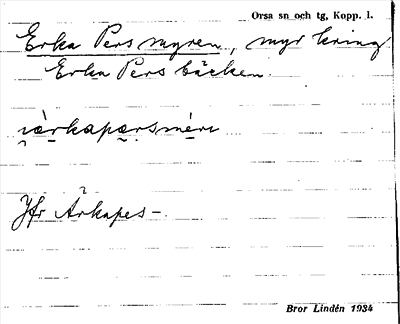 Orsa sn och tg, Kopp. l.
Erka Persmyren, myr kring
Erka Persbäcken.
Jfr Årkapes-.
Bror Lindén 1934